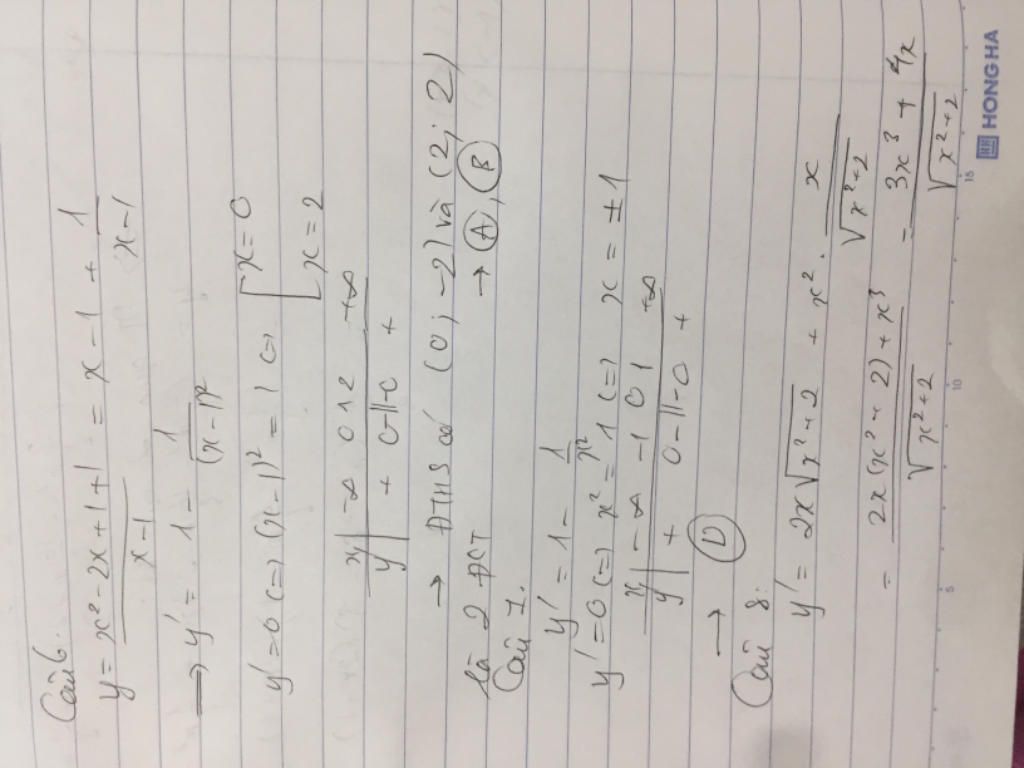 Câu 6.
y = x² - 2x + 1 + 1 / x - 1 = x - 1 + 1 / x - 1
⟹ y' = 1 - 1 / (x - 1)²
y' = 0 (=) (x - 1)² = 1 (=) [ x = 0
[ x = 2
x | -∞ 0 1 2 +∞
y | + 0 - || - 0 +
→ ĐTHS có (0; -2) và (2; 2)
là 2 ĐCT → (A), (B)
Câu 7.
y' = 1 - 1 / x²
y' = 0 (=) x² = 1 (=) x = ± 1
x | -∞ -1 0 1 +∞
y | + 0 - || - 0 +
→ (D)
Câu 8:
y' = 2x√x² + 2 + x² . x / √x² + 2
= 2x(x² + 2) + x³ / √x² + 2 = 3x³ + 4x / √x² + 2
HONG HA
5 10 15